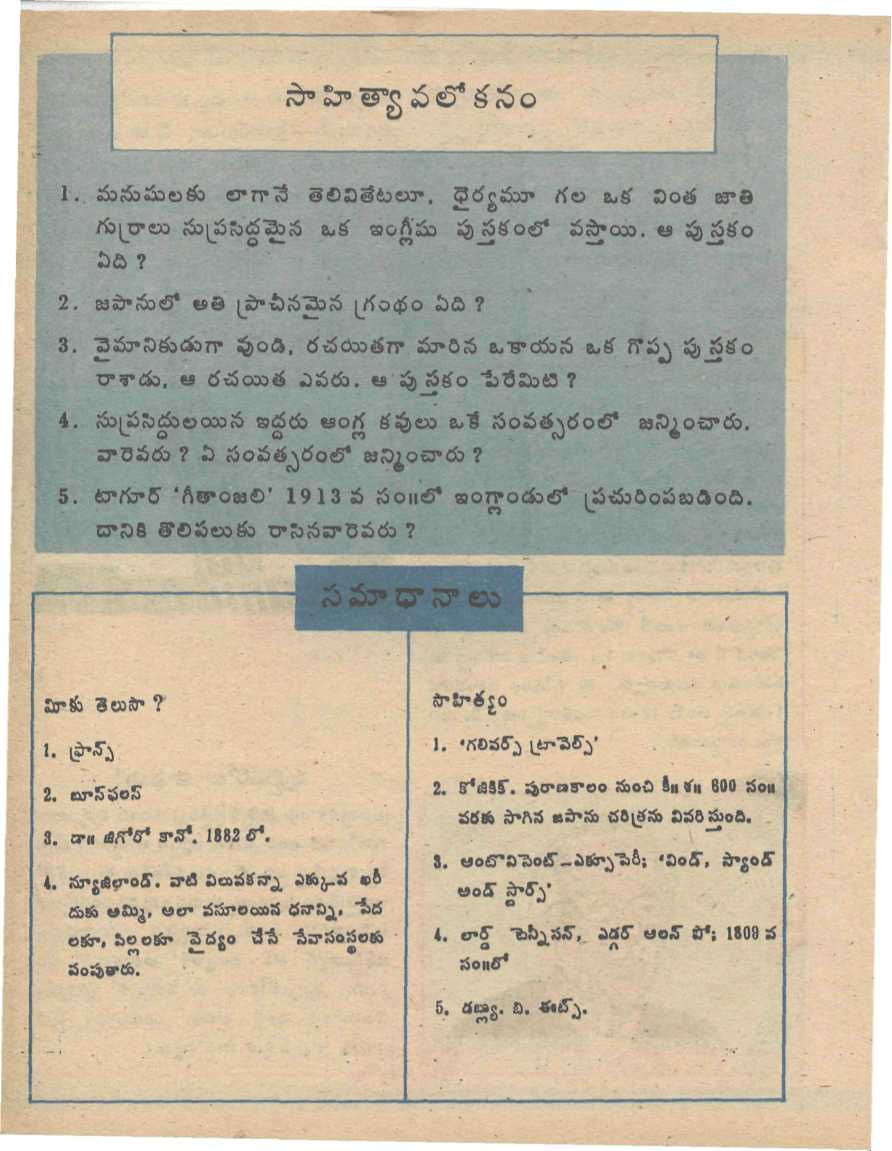 సాహిత్యావలోకనం
1. మనుషులకు లాగానే తెలివితేటలూ, ధైర్యమూ గల ఒక వింత జాతి
గుర్రాలు సుప్రసిద్ధమైన ఒక ఇంగ్లీషు పుస్తకంలో వస్తాయి. ఆ పుస్తకం
ఏది ?
2. జపానులో అతి ప్రాచీనమైన గ్రంథం ఏది ?
3. వైమానికుడుగా వుండి, రచయితగా మారిన ఒకాయన ఒక గొప్ప పుస్తకం
రాశాడు, ఆ రచయిత ఎవరు. ఆ పుస్తకం పేరేమిటి ?
4. సుప్రసిద్ధులయిన ఇద్దరు ఆంగ్ల కవులు ఒకే సంవత్సరంలో జన్మించారు.
వారెవరు ? ఏ సంవత్సరంలో జన్మించారు ?
5. టాగూర్ ‘గీతాంజలి’ 1913 వ సం॥లో ఇంగ్లాండులో ప్రచురింపబడింది.
దానికి తొలిపలుకు రాసినవారెవరు ?
సమాధానాలు
మీకు తెలుసా ?
1. ఫ్రాన్స్
2. బూస్‌ఫలస్
3. డా॥ జిగోరో కానో. 1882 లో.
4. న్యూజిలాండ్. వాటి విలువకన్నా ఎక్కువ ఖరీ
దుకు అమ్మి, అలా వసూలయిన ధనాన్ని, పేద
లకూ, పిల్లలకూ వైద్యం చేసే సేవాసంస్థలకు
పంపుతారు.
సాహిత్యం
1. ‘గలివర్స్ ట్రావెల్స్’
2. కోజికిక్. పురాణకాలం నుంచి క్రీ॥ శ॥ 600 సం॥
వరకు సాగిన జపాను చరిత్రను వివరిస్తుంది.
3. ఆంటొవిసెంట్–ఎక్సూపెరీ; ‘విండ్, స్యాండ్
అండ్ స్టార్స్’
4. లార్డ్ టెన్నీసన్, ఎడ్గర్ ఆలన్ పో; 1809 వ
సం॥లో
5. డబ్ల్యు. బి. ఈట్స్.